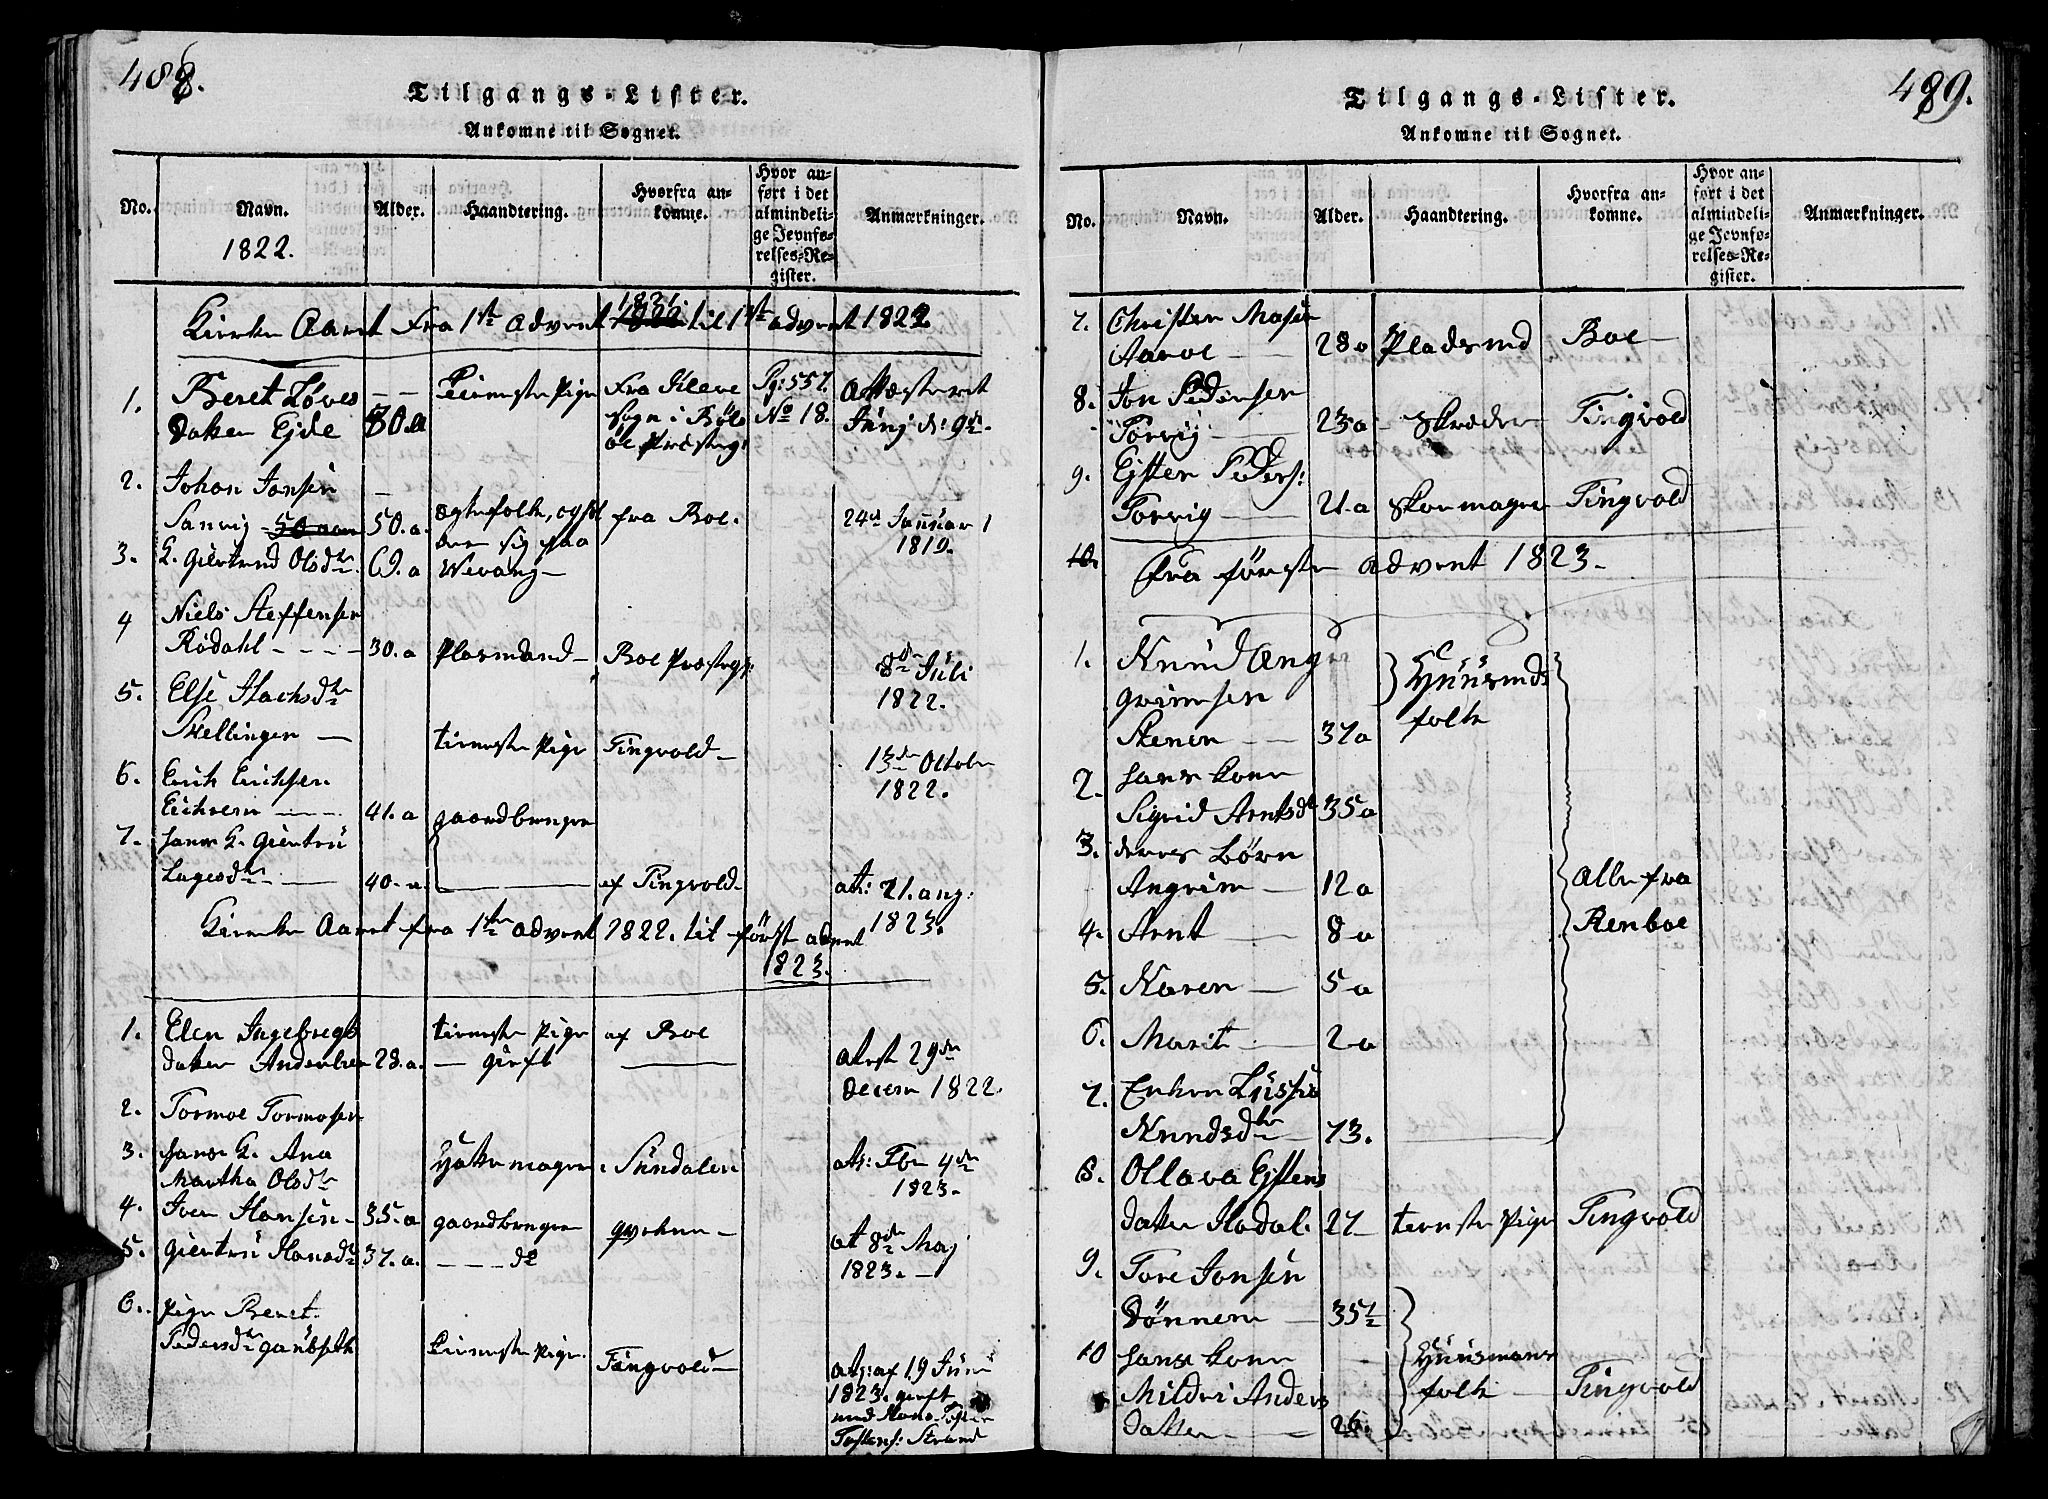 488.
Tilgangs-Lister.
Ankomne til Sognet.
No. Navn. Alder. Haandtering. Hvorfra ankomne. Hvor anført i det almindelige Jevnførelses-Register. Anmærkninger.
1822.
Kirke Aaret fra 1ste Advent 1821 til 1ste advent 1822.
1. Beret Lóves
Datter Ejde 30.a tieneste Pige Fra Kleve Sogn i Bóls Pg: 557. No 18. Attesteret Junj d: 9de.
2. Johan Jonsen
Sanvig 50 aar 50.a. egtefolk, fra Boe. 24de Januar 1819.
3. K. Giertrud Olsdtr. 69.a Wevang
4 Niels Steffensen
Rødahl 30.a Plasmand Boe Præstegj: 8de Juli 1822.
5. Else Hachsdtr
Skellingen tieneste Pige Tingvold 13de Octobr 1822.
6. Erich Erichsen
41.a gaardbruger
7. hans K. Giertru
Lagesdtr 40.a. af Tingvold at: 21. aug: 1823.
Kirke Aaret fra 1ste advent 1822. til først advent 1823.
1. Elen Ingebregts
datter 28.a. tieneste Pige gift af Boe atest 29de Decem 1822.
2. Tormoe Tormosen
3. hans K. Ana
Martha Olsdtr Hattemager Sundalen at: Fbr 4de 1823.
4. Iver Hansen 35.a gaardbruger qvehne at 8de Maj 1823.
5. Giertru Hansdtr 37.a. do
6. Pige Beret
Pedersdtr tieneste Pige Tingvold at: af 19 Juni
1823. gift
med
Tostens: Strand
489.
Tilgangs-Lister.
Ankomne til Sognet.
No. Navn. Alder. Haandtering. Hvorfra ankomne. Hvor anført i det almindelige Jevnførelses-Register. Anmærkninger.
7. Christen
Aaroe 28a Pladsmd Boe
8. Jon Pedersen
Torvig 23a Skreder Tingvold
9. Ejsten Peders:
Torvig 21a Skoemager Tingvold
10. Fra første advent 1823.
1. Knud Ang
grimsen
Stenen 37a Huusmds folk
2. hans kone
Sigrid Arntsdtr 35a
3. deres børn
Angrim 12a Alle fra
4. Arnt 8a Renboe
5. Karen 5a
6. Marit 2a
7. Enken
Knudsdtr 73.
8. Ollava Ejstens
datter Hodal. 27 tieneste Pige Tingvold
9. Tore Jonsen
Dønnem 35½
10 hans kone Huusmans
Mildri Anders folk Tingvold
datter 26.